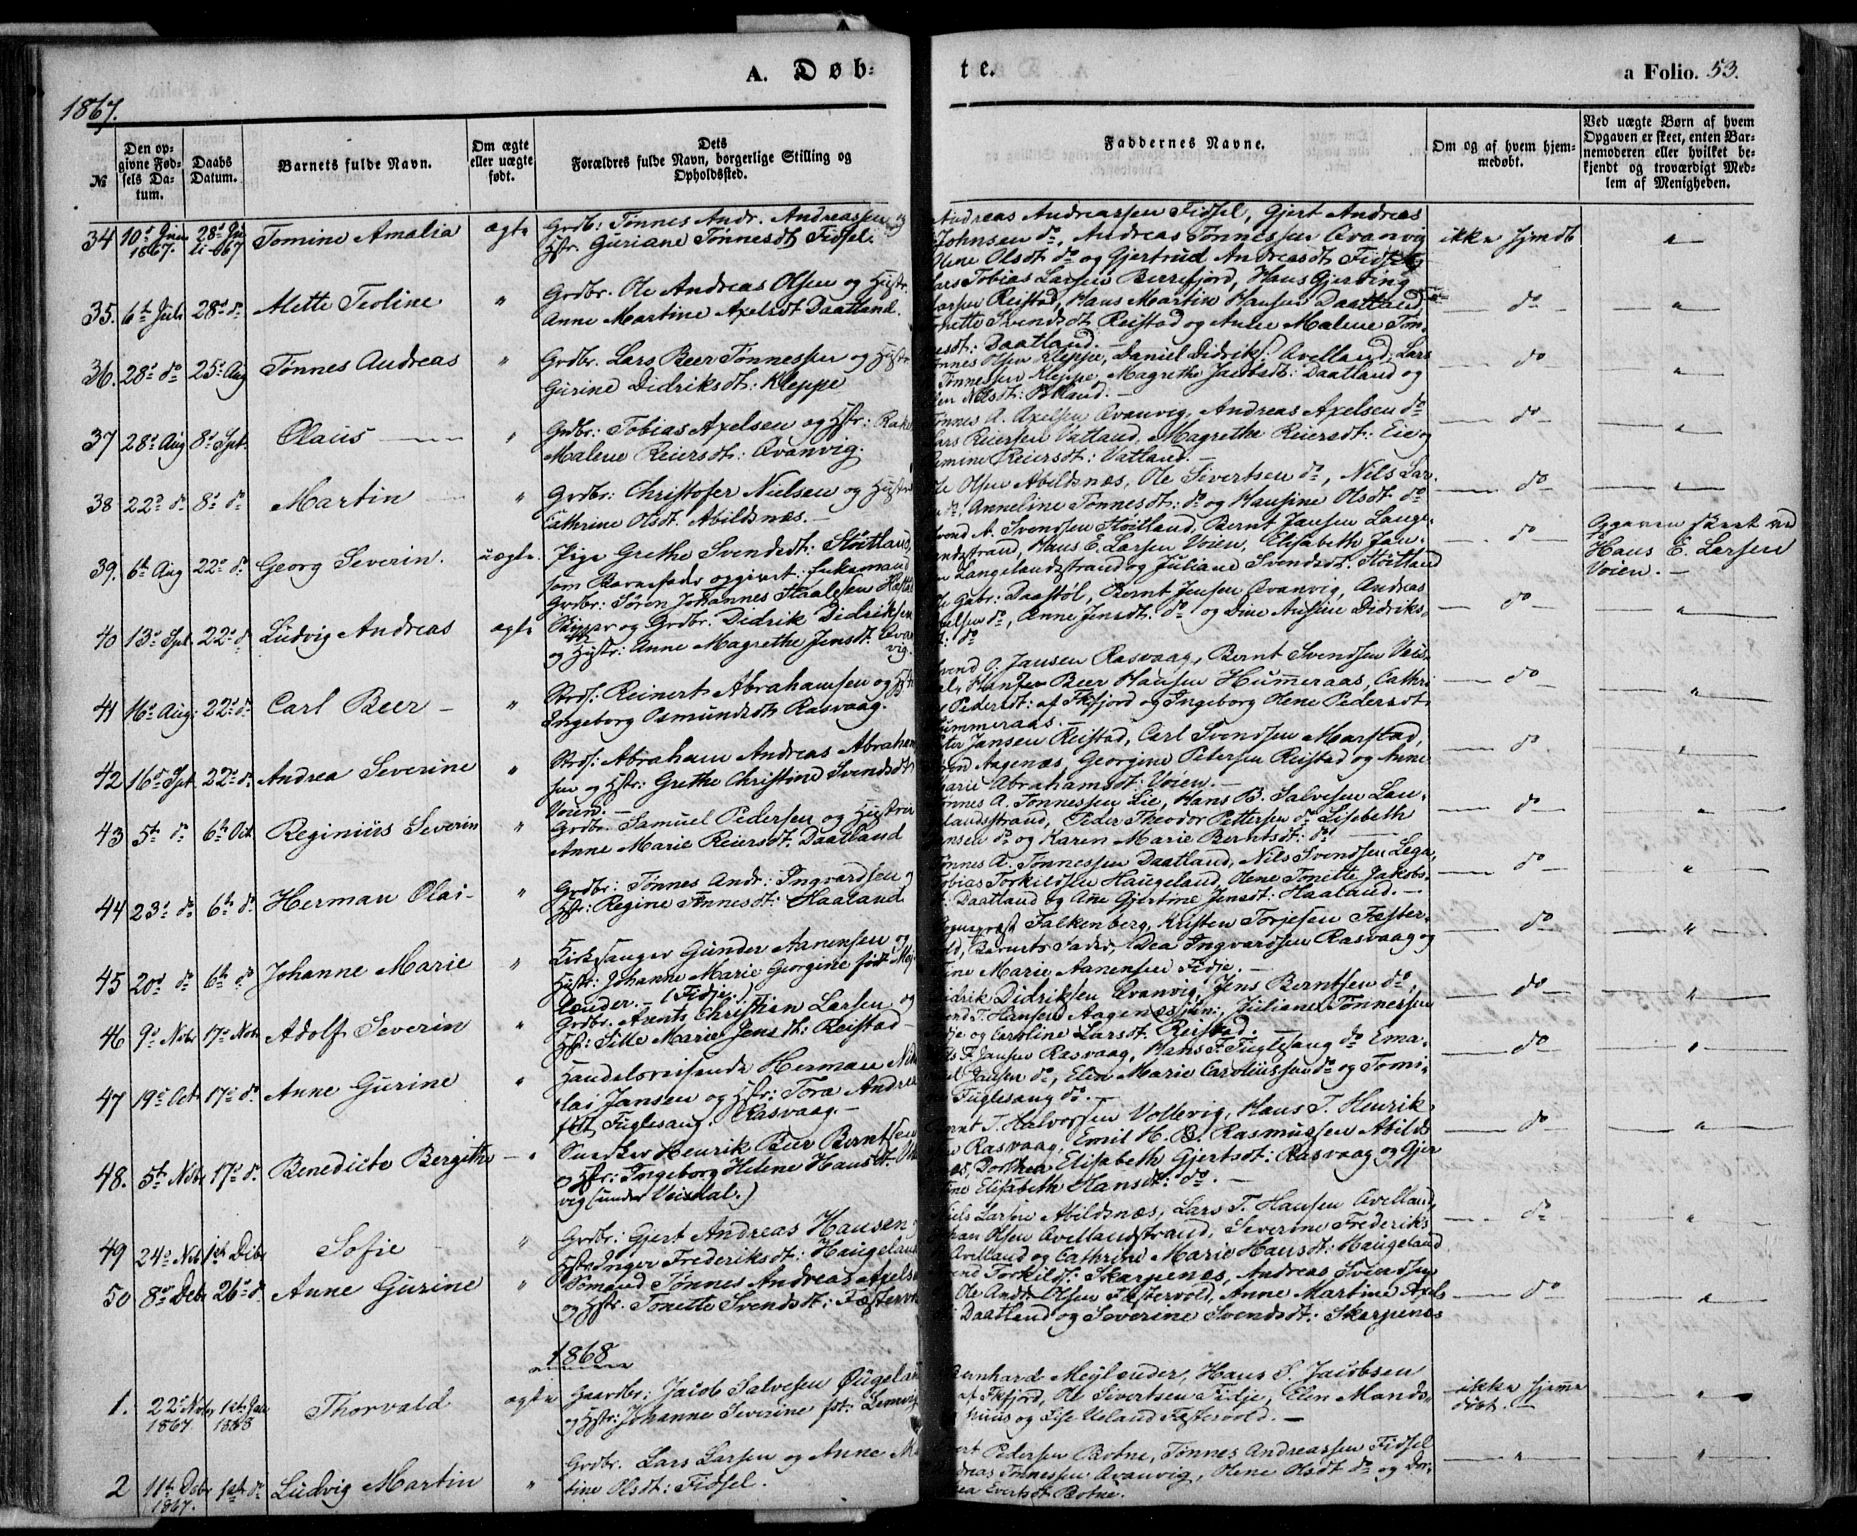 A. Døb-
te.
a Folio. 53.
1867.
№
Den op-
givne Fød-
sels Da-
tum.
Daabs
Datum.
Barnets fulde Navn.
Om ægte
eller uægte
født.
Dets
Forældres fulde Navn, borgerlige Stilling og
Opholdssted.
Faddernes Navne.
Om og af hvem hjem-
medøbt.
Ved uægte Børn af hvem
Opgaven er skeet, enten Bar-
nemoderen eller hvilket be-
kjendt og troværdigt Med-
lem af Menigheden.
34 10de Juni 1867. 28de Juli 1867 Tomine Amalia ægte
Grdb: Tønnes Andr. Andreassen og
Hstr. Guriane Tønnesdt. Fidsel.
Andreas Andreassen Fidsel, Gjert Andreas
Johnsen do, Andreas Tønnessen Qvanvig
Olene Olsdt do og Gjertrud Andreasdt Fidsel
ikke hjmdb "
35. 6te Juli 28de do Mette Teoline "
Grdbr. Ole Andreas Olsen og Hustr.
Anne Martine Axelsdt Daatland.
Lars Tobias Larsen Berrefjord, Hans Gjerting
Larsen Reistad, Hans Martin Hansen Daatland,
Tonette Svendsdt Reistad og Anne Malene Tøn-
nesdt: Daatland.
do "
36. 28de do 25de Aug Tønnes Andreas "
Grdbr. Lars Beer Tønnessen og Hustr
Gurine Didriksdt: Kleppe
Tønnes Olsen Kleppe, Daniel Didriks: Avelland, Lars
Tønnessen Kleppe, Magrethe Jacobsdt: Daatland og
do "
37 28de Aug 8de Sept. Olaus "
Grdbr: Tobias Axelsen og Hstr: Rakel
Malene Reiersdt: Qvanvig.
Tønnes A. Axelsen Qvanvig, Andreas Axelsen do
Lars Reiersen Vatland, Magrethe Reiersdt: Eie og
Reiersdt: Vatland
do "
38 22de do 8de do Martin "
Grdbr: Christofer Nielsen og Hustr
Cathrine Olsdt. Abildsnæs.
Ole Olsen Abildsnæs, Ole Sivertsen do, Nils Lar-
Anneline Tønnesdt: do og Hansine Olsdt do
do "
39. 6te Aug 22de do Georg Severin. uægte
Pige Grethe Svendsdt: Støitland,
som Barnefader opgivet: Enkemand
Grdbr: Søren Johannes Staalesen
Svend A. Svendsen Støitland, Bernt Jansen Lange-
landsstrand, Hans E. Larsen Voien, Elisabeth Jan-
Langelandsstrand og Juliane Svendsdt. Støitland
do
Opgaven skeet ved
Hans E. Larsen
Voien.
40 13de Spt. 22de do Ludvig Andreas ægte
Skipper og Grdbr: Didrik Didriksen
og Hstr: Anne Magrethe Jensdt. Qvan
vig.
Ole Gabr: Daastøl, Bernt Jensen Qvanvig, Andreas
do, Anne Jensdt: do og Dine Ansine Didriks-
do
do "
41 16de Aug: 22de do Carl Beer "
Strds: Reinert Abrahamsen og Hstr
Ingeborg Osmundsdt Rasvaag.
Svend J. Jansen Rasvaag, Bernt Svendsen Veis-
dal, Hans Beer Hansen Hummeraas, Cathri
Pedersdt: af Flkfjord og Ingeborg Olene Pedersdt:
Hummeraas.
do "
42 16de Spt. 22de do Andrea Severine "
Strds: Abraham Andreas Abraham
sen og Hstr: Grethe Christine Svendsdt:
Voien.
Peter Jansen Reistad, Carl Svendsen Marstad,
Aagenæs, Georgine Petersen Reistad og Anne
Marie Abrahamsdt: Voien.
do "
43 5te do 6te Oct. Reginius Severin "
Grdbr. Samuel Pedersen og Hustru
Anne Marie Reiersdt. Daatland
Tønnes A. Tønnessen Lie, Hans B. Salvesen Lan-
gelandsstrand, Peder Theodor Pettersen do Lisebeth
Hansen do og Karen Marie Berntsdt: do
do "
44 23de do 6te do Herman Olai "
Grdbr: Tønnes Andr: Ingvardsen og
Hstr: Regine Tønnesdt: Haaland
Tønnes A. Tønnessen Daatland, Nils Svendsen Lega,
Tobias Torkildsen Haugeland, Olene Tonette Jakobs-
Daatland og Ane Gjertine Jensdt: Haaland.
do "
45 20de do 6te do Johanne Marie "
Kirkesanger Gunder Aanensen og
Hustr: Johanne Marie Georgine født Mej-
lænder. (Fidje.)
Sogneprest Falkenberg, Kristen Torjesen Fæster-
vold, Barnets Fader, Dea Ingvardsen Rasvaag og
Marie Aanensen Fidje.
do "
46 9de Nobr 17de Nobr Adolf Severin "
Grdbr. Arents Christian Larsen og
Hstr: Sille Marie Jensdt: Reistad
Didrik Didriksen Qvanvig, Jens Berntsen do,
Svend T. Hansen Aagenæs, Juliane Tønnessen
Fidje og Caroline Larsdt. Reistad.
do "
47 19de Octr 17de do Anne Gurine "
Handelsreisende Herman Niko
lai Jansen og Hstr: Tora Andrea
født Fuglesang. Rasvaag.
Nils F. Jansen Rasvaag, Hans F. Fuglesang do Ema-
nuel Jansen do, Elen Marie Caroliussen do og Tomi-
Fuglesang do.
do "
48. 5te Nobr 17de do Benedicte Bergithe "
Snedker Henrik Beer Berntsen
og Hstr: Ingeborg Helene Hansdt:
vig (under Veisdal.)
Bernt T. Halvorsen Vollevig, Hans T. Henrik
Rasvaag, Emil H. O. Rasmussen Abilds
næs, Dorthea Elisabeth Gjertsdt: Rasvaag og Gjer
tine Elisabeth Hansdt: do.
do "
49 24de Nobr 1ste Debr Sofie "
Grdbr: Gjert Andreas Hansen
Hstr Inger Frederiksdt: Haugeland
Niels Larsen Abildsnæs, Lars T. Hansen Avelland,
Johan Olsen Avellandstrand, Severine Frederiks-
Avelland og Cathrine Marie Hansdt: Haugeland
do "
50 8de Debr 26de do Anne Gurine "
Sømand Tønnes Andreas Axelsen
og Hstr. Tonette Svendsdt: Fæstervold
Svend Torkilds: Skarpenes, Andreas Svendsen
Ole Andr Olsen Fæstervold, Anne Martine Axels
Daatland og Severine Svendsdt: Skarpenes
do "
1868
1. 22de Nobr 1867 1ste Jan 1868 Thorvald ægte
Gaardbr: Jacob Salvesen Øugeland
og Hstr: Johanne Severine
Bernhard Mejlænder, Hans S. Jacobsen
af Flkfjord, Ole Sivertsen Fidje, Elen Mands-
huus og Lise Ueland Fæstervold.
ikke hjemme
døbt. "
2 11te Debr 1867. 1ste do Ludvig Martin "
Grdbr. Lars Larsen og Anne Mar
tine Olsdt: Fidsel.
Gjert Pedersen Botne, Tønnes Andreassen Fidsel
Andreas Tønnessen Qvanvig, Olene Olsdt do og Dor-
thea Evertsdt Botne.
" "